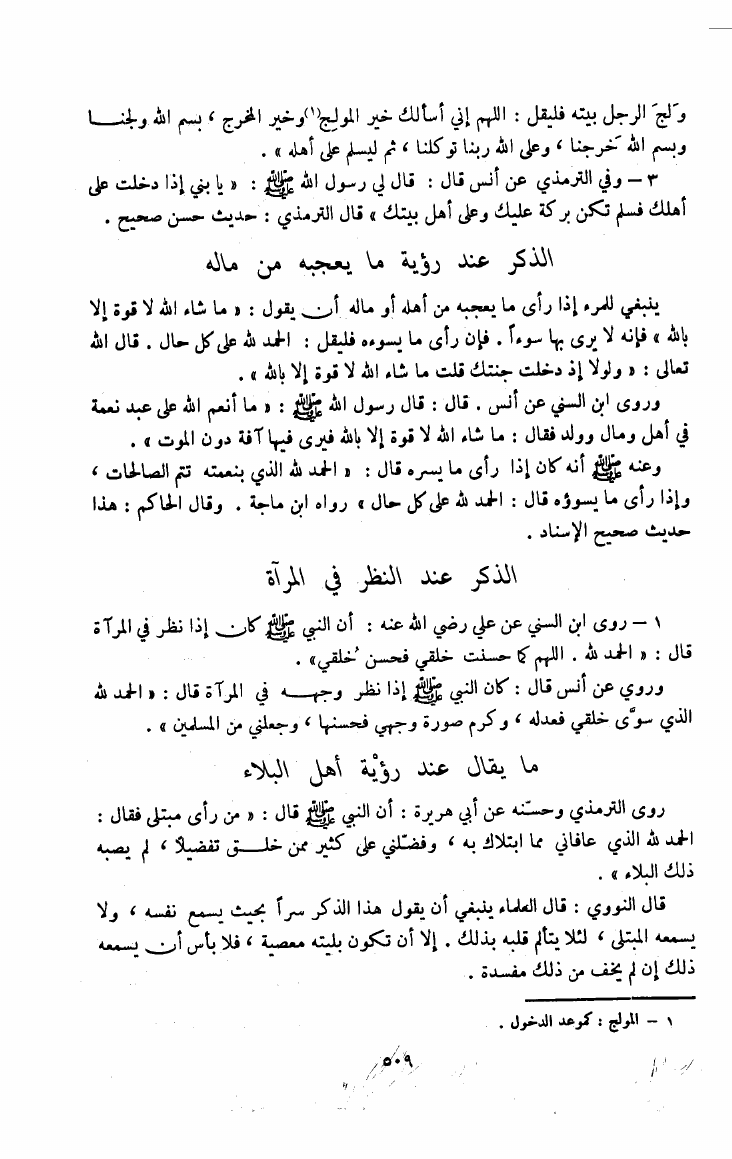 وَلجَ الرجل بيته فليقل : اللهم إني أسألك خير المولج(١)وخير المخرج ، بسم الله ولجنا
وبسم الله خَرجنا ، وعلى الله ربنا توكلنا ، ثم ليسلم على أهله » .
٣ – وفي الترمذي عن أنس قال : قال لي رسول الله ﷺ : « يا بني إذا دخلت على
أهلك فسلم تكن بركة عليك وعلى أهل بيتك » قال الترمذي : حديث حسن صحيح .
الذكر عند رؤية ما يعجبه من ماله
ينبغي للمرء إذا رأى ما يعجبه من أهله أو ماله أن يقول : « ما شاء الله لا قوة إلا
بالله » فإنه لا يرى بها سوءاً . فإن رأى ما يسوءه فليقل : الحمد لله على كل حال . قال الله
تعالى : « ولولا إذ دخلت جنتك قلت ما شاء الله لا قوة إلا بالله » .
وروى ابن السني عن أنس . قال : قال رسول الله ﷺ : « ما أنعم الله على عبد نعمة
في أهل ومال وولد فقال : ما شاء الله لا قوة إلا بالله فيرى فيها آفة دون الموت » .
وعنه ﷺ أنه كان إذا رأى ما يسره قال : « الحمد لله الذي بنعمته تتم الصالحات ،
وإذا رأى ما يسوؤه قال : الحمد لله على كل حال » رواه ابن ماجة . وقال الحاكم : هذا
حديث صحيح الإسناد .
الذكر عند النظر في المرآة
١ – روى ابن السني عن علي رضي الله عنه : أن النبي ﷺ كان إذا نظر في المرآة
قال : « الحمد لله . اللهم كما حسنت خلقي فحسن خُلقي» .
وروي عن أنس قال : كان النبي ﷺ إذا نظر وجهه في المرآة قال : « الحمد لله
الذي سوَّى خلقي فعدله ، وكرم صورة وجهي فحسنها ، وجعلني من المسلمين » .
ما يقال عند رؤْية أهل البلاء
روى الترمذي وحسّنه عن أبي هريرة : أن النبي ﷺ قال : « من رأى مبتلى فقال :
الحمد لله الذي عافاني مما ابتلاك به ، وفضّلني على كثير ممن خلق تفضيلاً ، لم يصبه
ذلك البلاء » .
قال النووي : قال العلماء ينبغي أن يقول هذا الذكر سراً بحيث يسمع نفسه ، ولا
يسمعه المبتلى ، لئلا يتألم قلبه بذلك . إلا أن تكون بليته معصية ، فلا بأس أن يسمعه
ذلك إن لم يخف من ذلك مفسدة .
١ – المولج : كموعد الدخول .
٥٠٩